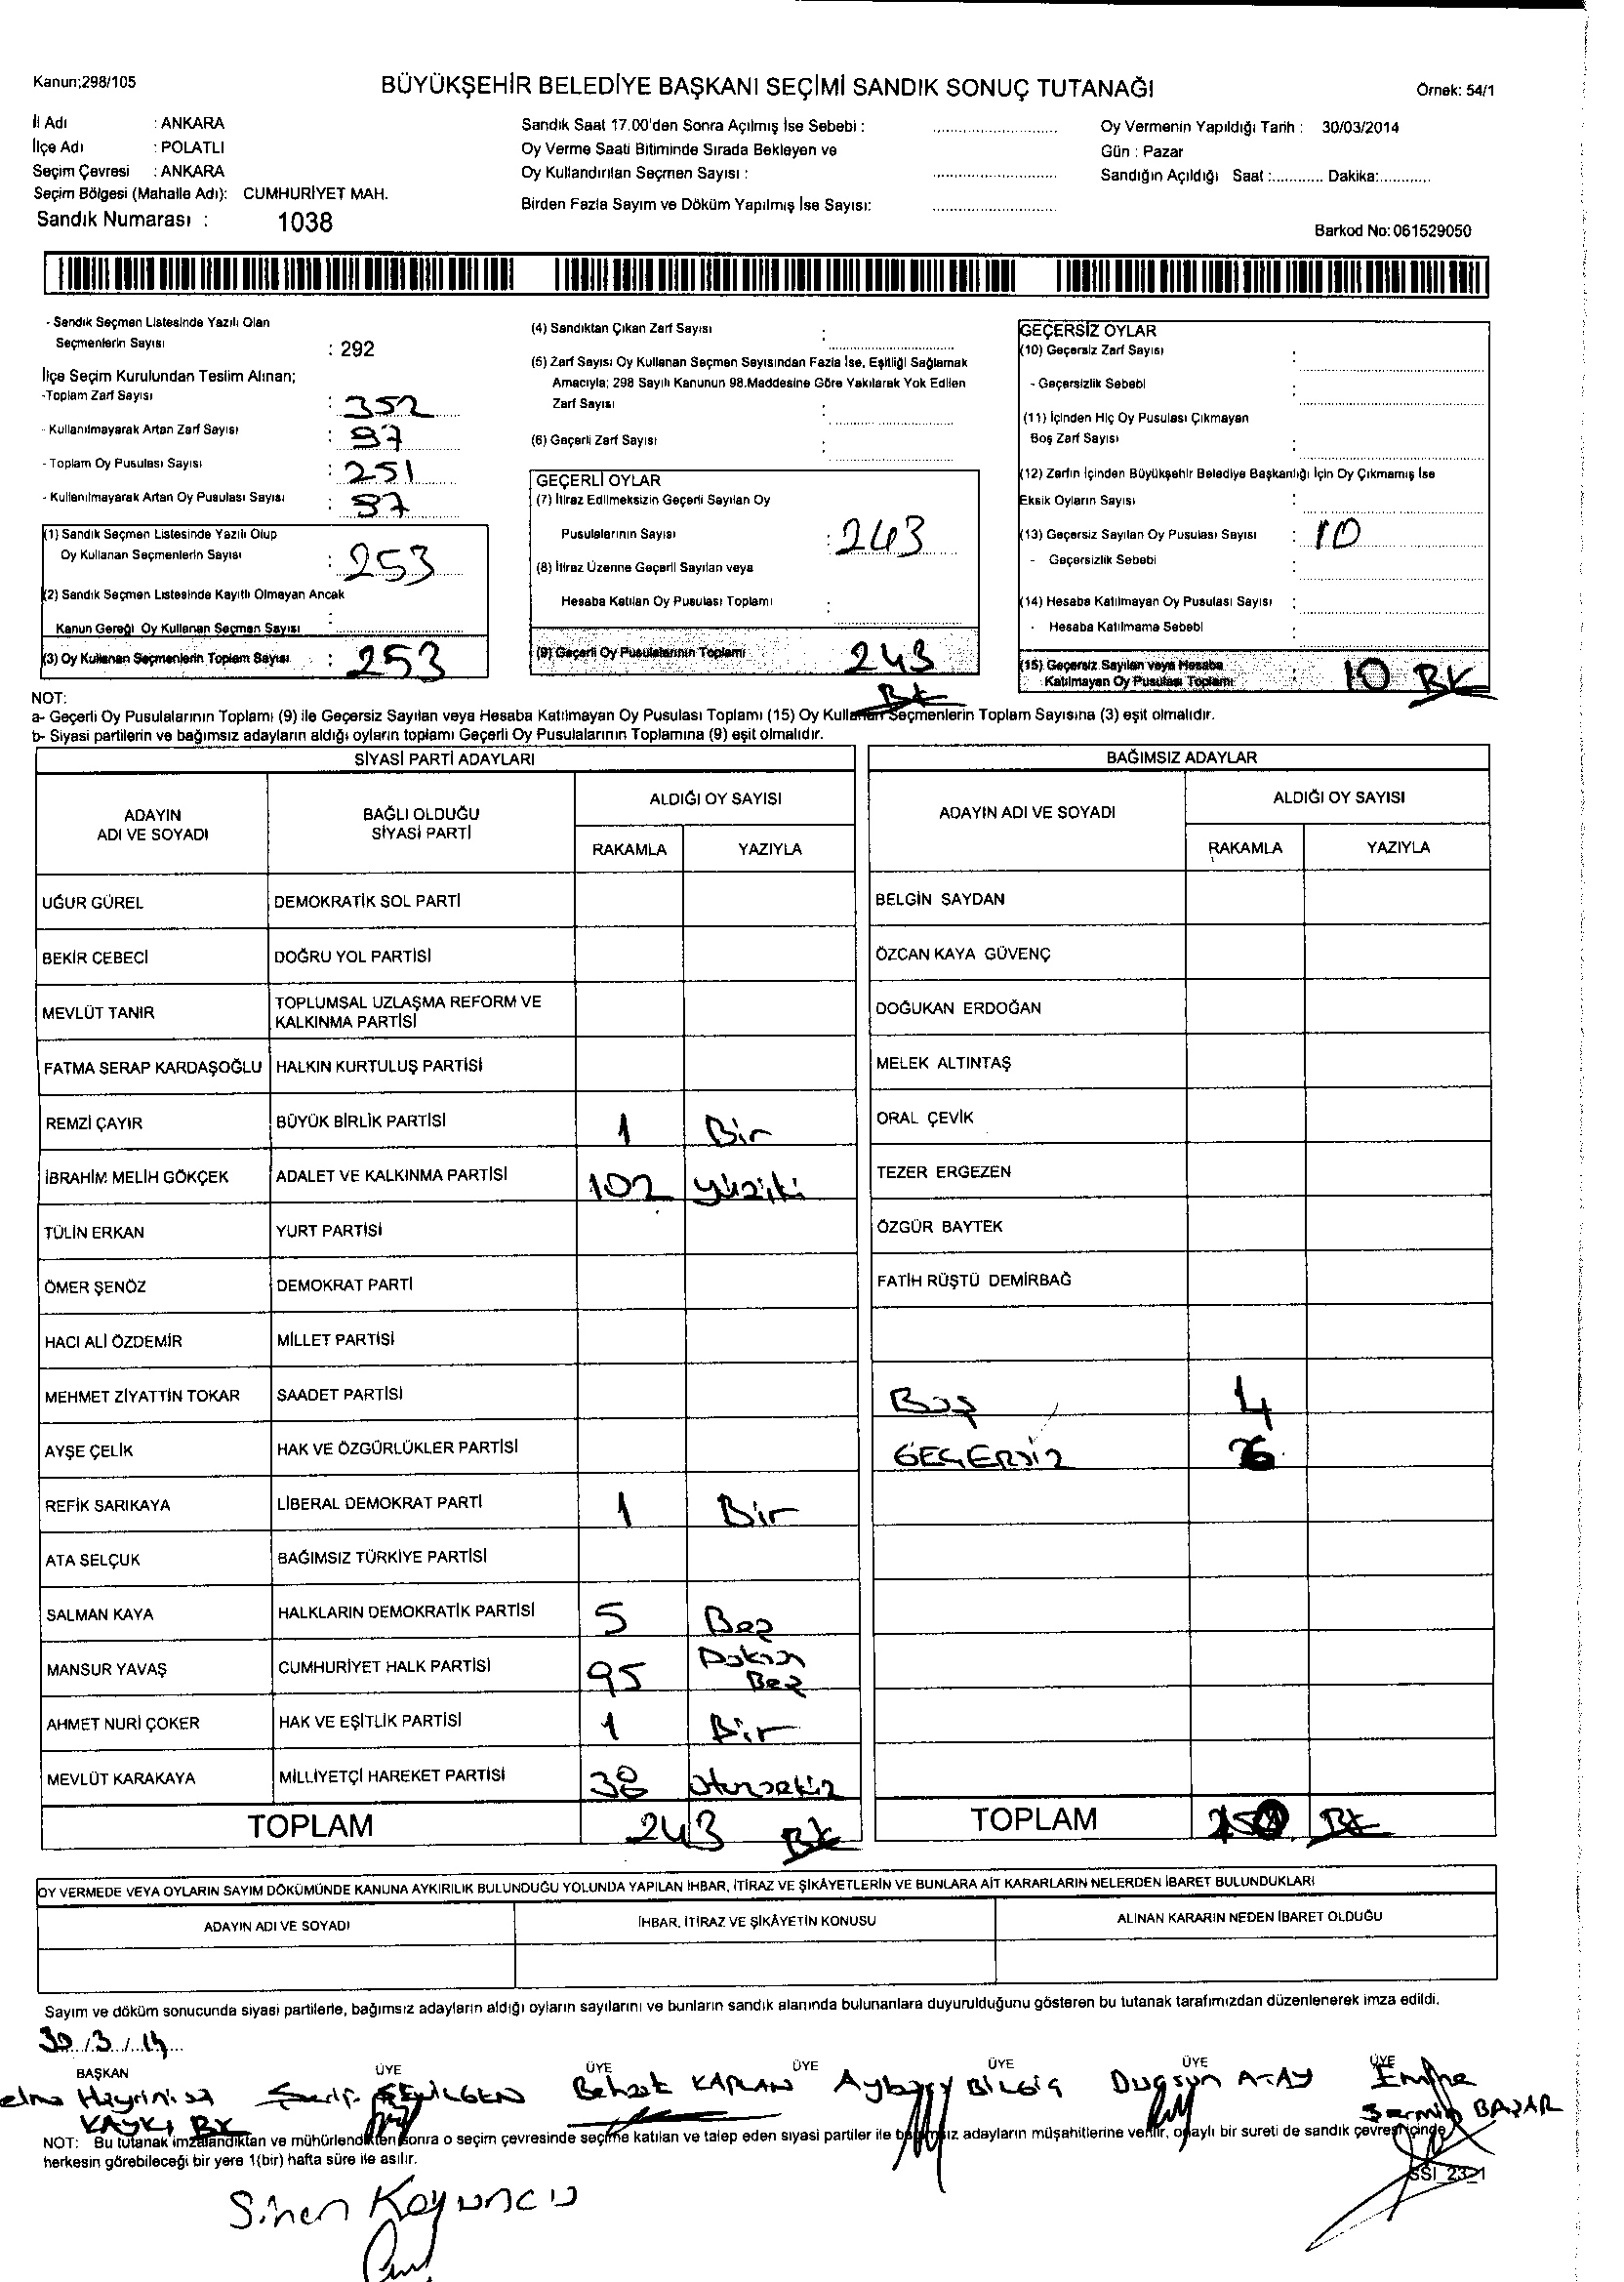 Kanun;298/105
BÜYÜKŞEHİR BELEDİYE BAŞKANI SEÇİMİ SANDIK SONUÇ TUTANAĞI
Örnek: 54/1
İl Adı : ANKARA
İlçe Adı : POLATLI
Seçim Çevresi : ANKARA
Seçim Bölgesi (Mahalle Adı): CUMHURİYET MAH.
Sandık Numarası : 1038
Sandık Saat 17.00'den Sonra Açılmış İse Sebebi :
Oy Verme Saati Bitiminde Sırada Bekleyen ve
Oy Kullandırılan Seçmen Sayısı :
Birden Fazla Sayım ve Döküm Yapılmış İse Sayısı:
Oy Vermenin Yapıldığı Tarih : 30/03/2014
Gün : Pazar
Sandığın Açıldığı Saat :............ Dakika:............
Barkod No: 061529050
- Sandık Seçmen Listesinde Yazılı Olan
Seçmenlerin Sayısı : 292
İlçe Seçim Kurulundan Teslim Alınan;
-Toplam Zarf Sayısı : 352
- Kullanılmayarak Artan Zarf Sayısı : 97
- Toplam Oy Pusulası Sayısı : 251
- Kullanılmayarak Artan Oy Pusulası Sayısı : 97
(1) Sandık Seçmen Listesinde Yazılı Olup
Oy Kullanan Seçmenlerin Sayısı : 253
(2) Sandık Seçmen Listesinde Kayıtlı Olmayan Ancak
Kanun Gereği Oy Kullanan Seçmen Sayısı :
(3) Oy Kullanan Seçmenlerin Toplam Sayısı : 253
(4) Sandıktan Çıkan Zarf Sayısı :
(5) Zarf Sayısı Oy Kullanan Seçmen Sayısından Fazla İse, Eşitliği Sağlamak
Amacıyla; 298 Sayılı Kanunun 98.Maddesine Göre Yakılarak Yok Edilen
Zarf Sayısı :
(6) Geçerli Zarf Sayısı :
GEÇERLİ OYLAR
(7) İtiraz Edilmeksizin Geçerli Sayılan Oy
Pusulalarının Sayısı : 243
(8) İtiraz Üzerine Geçerli Sayılan veya
Hesaba Katılan Oy Pusulası Toplamı :
(9) Geçerli Oy Pusulalarının Toplamı 243
BK
GEÇERSİZ OYLAR
(10) Geçersiz Zarf Sayısı :
- Geçersizlik Sebebi :
(11) İçinden Hiç Oy Pusulası Çıkmayan
Boş Zarf Sayısı :
(12) Zarfın İçinden Büyükşehir Belediye Başkanlığı İçin Oy Çıkmamış İse
Eksik Oyların Sayısı :
(13) Geçersiz Sayılan Oy Pusulası Sayısı : 10
- Geçersizlik Sebebi :
(14) Hesaba Katılmayan Oy Pusulası Sayısı :
- Hesaba Katılmama Sebebi :
(15) Geçersiz Sayılan veya Hesaba
Katılmayan Oy Pusulası Toplamı : 10 BK
NOT:
a- Geçerli Oy Pusulalarının Toplamı (9) ile Geçersiz Sayılan veya Hesaba Katılmayan Oy Pusulası Toplamı (15) Oy Kullanan Seçmenlerin Toplam Sayısına (3) eşit olmalıdır.
b- Siyasi partilerin ve bağımsız adayların aldığı oyların toplamı Geçerli Oy Pusulalarının Toplamına (9) eşit olmalıdır.
SİYASİ PARTİ ADAYLARI
ADAYIN ADI VE SOYADI BAĞLI OLDUĞU SİYASİ PARTİ ALDIĞI OY SAYISI
RAKAMLA YAZIYLA
UĞUR GÜREL DEMOKRATİK SOL PARTİ
BEKİR CEBECİ DOĞRU YOL PARTİSİ
MEVLÜT TANIR TOPLUMSAL UZLAŞMA REFORM VE
KALKINMA PARTİSİ
FATMA SERAP KARDAŞOĞLU HALKIN KURTULUŞ PARTİSİ
REMZİ ÇAYIR BÜYÜK BİRLİK PARTİSİ 1 Bir
İBRAHİM MELİH GÖKÇEK ADALET VE KALKINMA PARTİSİ 102 Yüziki
TÜLİN ERKAN YURT PARTİSİ
ÖMER ŞENÖZ DEMOKRAT PARTİ
HACI ALİ ÖZDEMİR MİLLET PARTİSİ
MEHMET ZİYATTİN TOKAR SAADET PARTİSİ
AYŞE ÇELİK HAK VE ÖZGÜRLÜKLER PARTİSİ
REFİK SARIKAYA LİBERAL DEMOKRAT PARTİ 1 Bir
ATA SELÇUK BAĞIMSIZ TÜRKİYE PARTİSİ
SALMAN KAYA HALKLARIN DEMOKRATİK PARTİSİ 5 Beş
MANSUR YAVAŞ CUMHURİYET HALK PARTİSİ 95 Doksan
Beş
AHMET NURİ ÇOKER HAK VE EŞİTLİK PARTİSİ 1 Bir
MEVLÜT KARAKAYA MİLLİYETÇİ HAREKET PARTİSİ 38 Otuzsekiz
TOPLAM 243 BK
BAĞIMSIZ ADAYLAR
ADAYIN ADI VE SOYADI ALDIĞI OY SAYISI
RAKAMLA YAZIYLA
BELGİN SAYDAN
ÖZCAN KAYA GÜVENÇ
DOĞUKAN ERDOĞAN
MELEK ALTINTAŞ
ORAL ÇEVİK
TEZER ERGEZEN
ÖZGÜR BAYTEK
FATİH RÜŞTÜ DEMİRBAĞ
Boş 4
GEÇERSİZ 6
TOPLAM BK
OY VERMEDE VEYA OYLARIN SAYIM DÖKÜMÜNDE KANUNA AYKIRILIK BULUNDUĞU YOLUNDA YAPILAN İHBAR, İTİRAZ VE ŞİKÂYETLERİN VE BUNLARA AİT KARARLARIN NELERDEN İBARET BULUNDUKLARI
ADAYIN ADI VE SOYADI İHBAR, İTİRAZ VE ŞİKÂYETİN KONUSU ALINAN KARARIN NEDEN İBARET OLDUĞU
Sayım ve döküm sonucunda siyasi partilerle, bağımsız adayların aldığı oyların sayılarını ve bunların sandık alanında bulunanlara duyurulduğunu gösteren bu tutanak tarafımızdan düzenlenerek imza edildi.
30./3./..14...
BAŞKAN ÜYE ÜYE ÜYE ÜYE ÜYE ÜYE
elma Hayrinisa Şerif SEVİLGEN Behzat KAPLAN Aybars BİLGİÇ Dugsun ATAY Emine
KAYKI BK Sermin BAŞAR
NOT: Bu tutanak imzalandıktan ve mühürlendikten sonra o seçim çevresinde seçime katılan ve talep eden siyasi partiler ile bağımsız adayların müşahitlerine verilir, onaylı bir sureti de sandık çevresi içinde
herkesin görebileceği bir yere 1(bir) hafta süre ile asılır.
SSI_23_1
Sinen Koyuncu